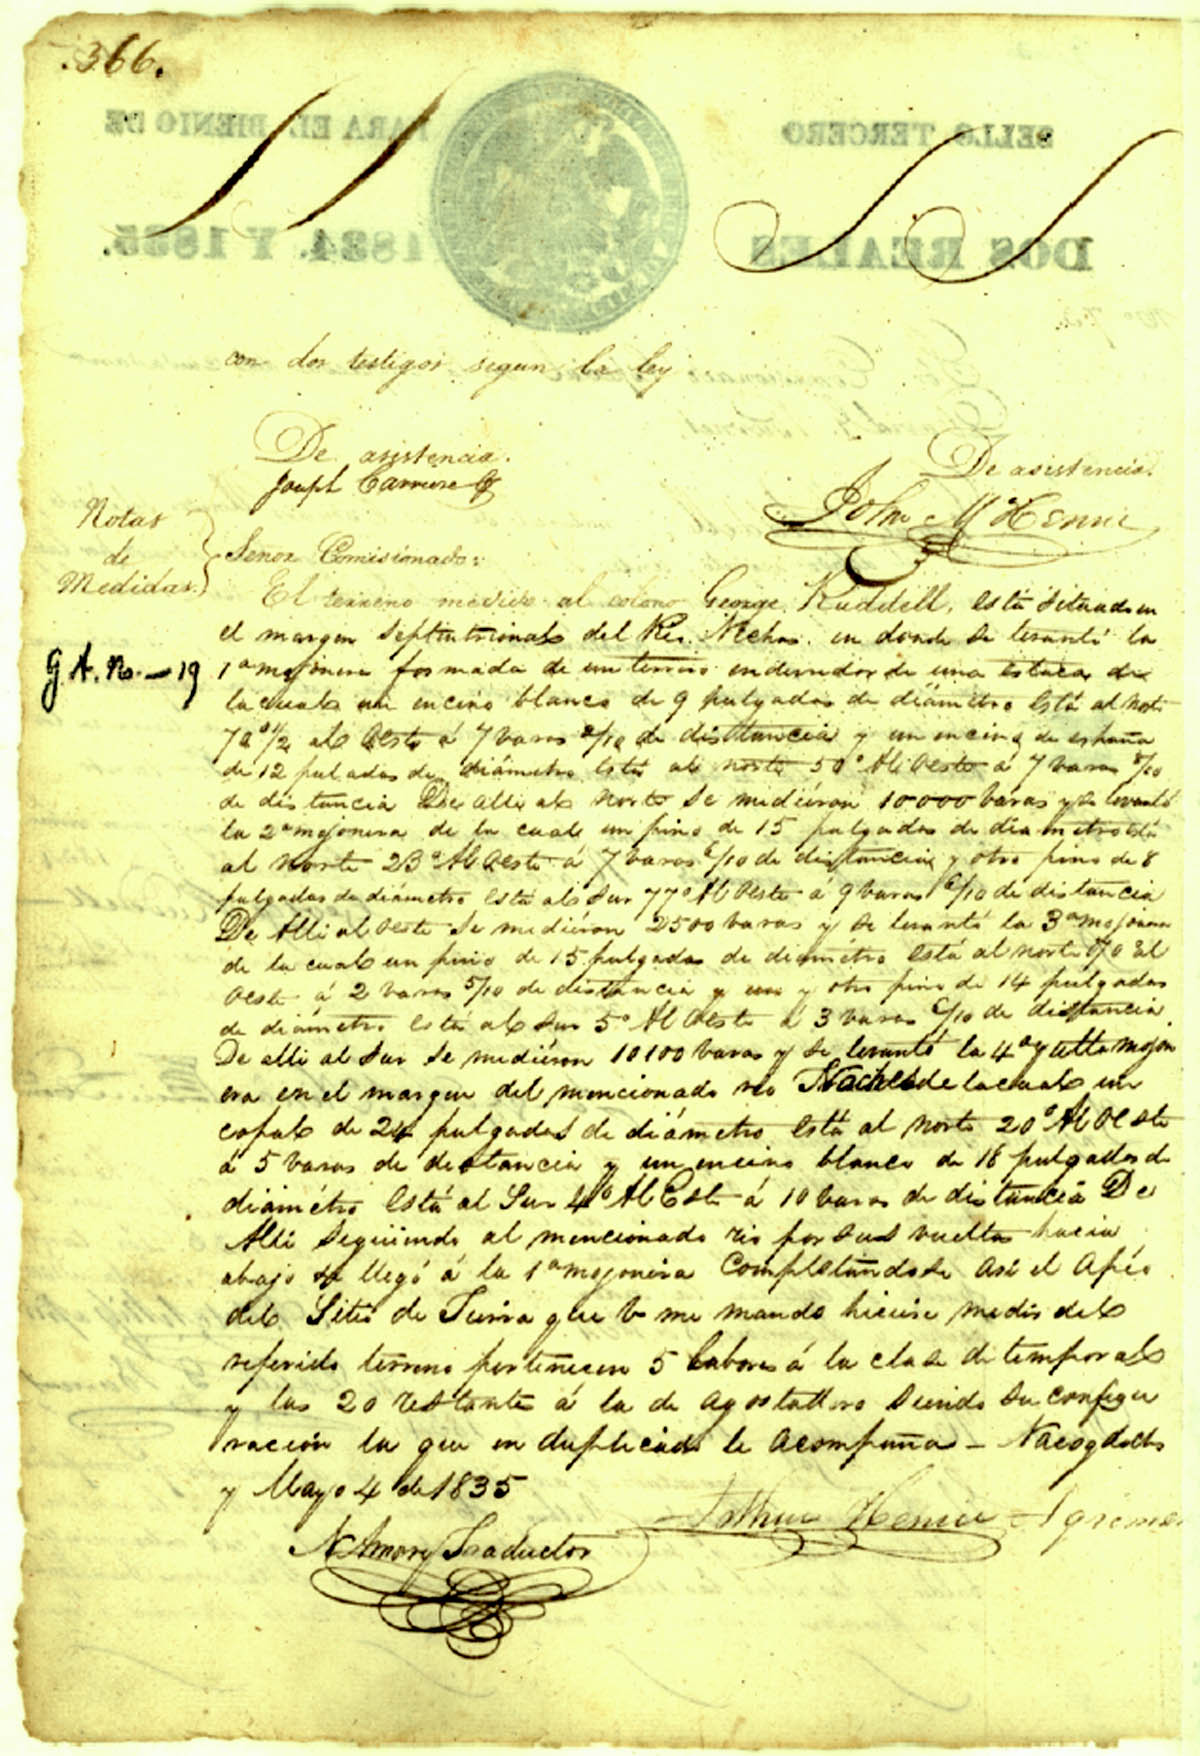 .366.
SELLO TERCERO PARA EL BIENIO DE
DOS REALES 1834. Y 1835.
con dos testigos segun la ley
De asistencia.
De asistencia.
Joseph Carriere
John McHenrie
Notas
de
Medidas.
Senor Comisionado:
El terreno medido al colono George Ruddell, está situado en
el margen Septentrional del Rio Neches. en donde se levantó la
G.A.N. — 19
1ª mojonera formada de un terreno enderredor de una estaca de
la cual un encino blanco de 9 pulgadas de diámetro está al Norte
½ al Oeste á 7 varas /10 de distancia y un encino de españa
de 12 puladas de diámetro está al norte 50º Al Oeste á 7 varas 8/10
de distancia De alli al norte se midiéron 10000 varas y se levantó
la 2ª mojonera de la cual un pino de 15 pulgadas de diametro está
al norte 23º Al Oeste á 7 varas /10 de distancia y otro pino de 8
pulgadas de diámetro está al Sur 77º Al Oeste á 9 varas /10 de distancia
De Alli al Oeste Se midiéron 2500 varas y se levantó la 3ª mojonera
de la cual un pino de 15 pulgadas de diamétro está al norte al
Oeste á 2 varas 5/10 de distancia y un y otro pino de 14 pulgadas
de diámetro está al Sur 5º Al Oeste á 3 varas /10 de distancia
De alli al Sur se midiéron 10100 varas y se levantó la 4ª y ultta mojon
era en el margen del mencionado rio Naches de la cual un
copal de 24 pulgadas de diámetro está al norte 20º Al Oeste
á 5 varas de distancia y un encino blanco de 18 pulgadas de
diamétro está al Sur 4º Al Este á 10 varas de distancia De
Alli Seguiendo al mencionado rio por sus vueltas hacia
abajo se llegó á la 1ª mojonera Completandose asi el Apéo
del Sitio de Tierra que V me mando hiciese medir del
referido terreno pertenecen 5 labores á la clase de temporal
y las 20 restante á la de agostattero siendo su configu
ración la que en duplicado le acompaña — Nacogdoches
y Mayo 4 de 1835
Arthur Henrie Agrimen
N Amory Traductor